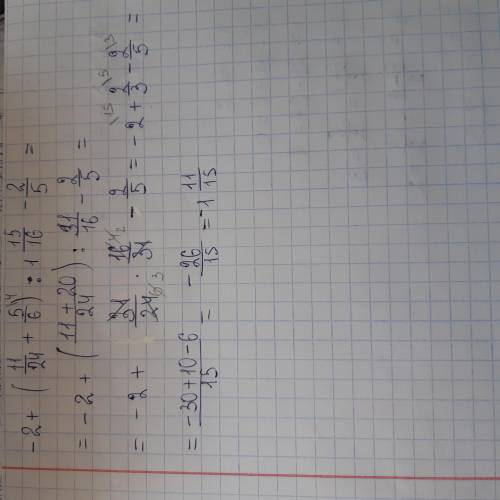 -2 + (11/24 + 5\4/6) : 1 15/16 - 2/5 =
= -2 + (11 + 20/24) : 31/16 - 2/5 =
= -2 + 31/24 · 16/31 - 2/5 = -2\15 + 2\5/3 - 2\3/5 =
= -30 + 10 - 6/15 = -26/15 = -1 11/15